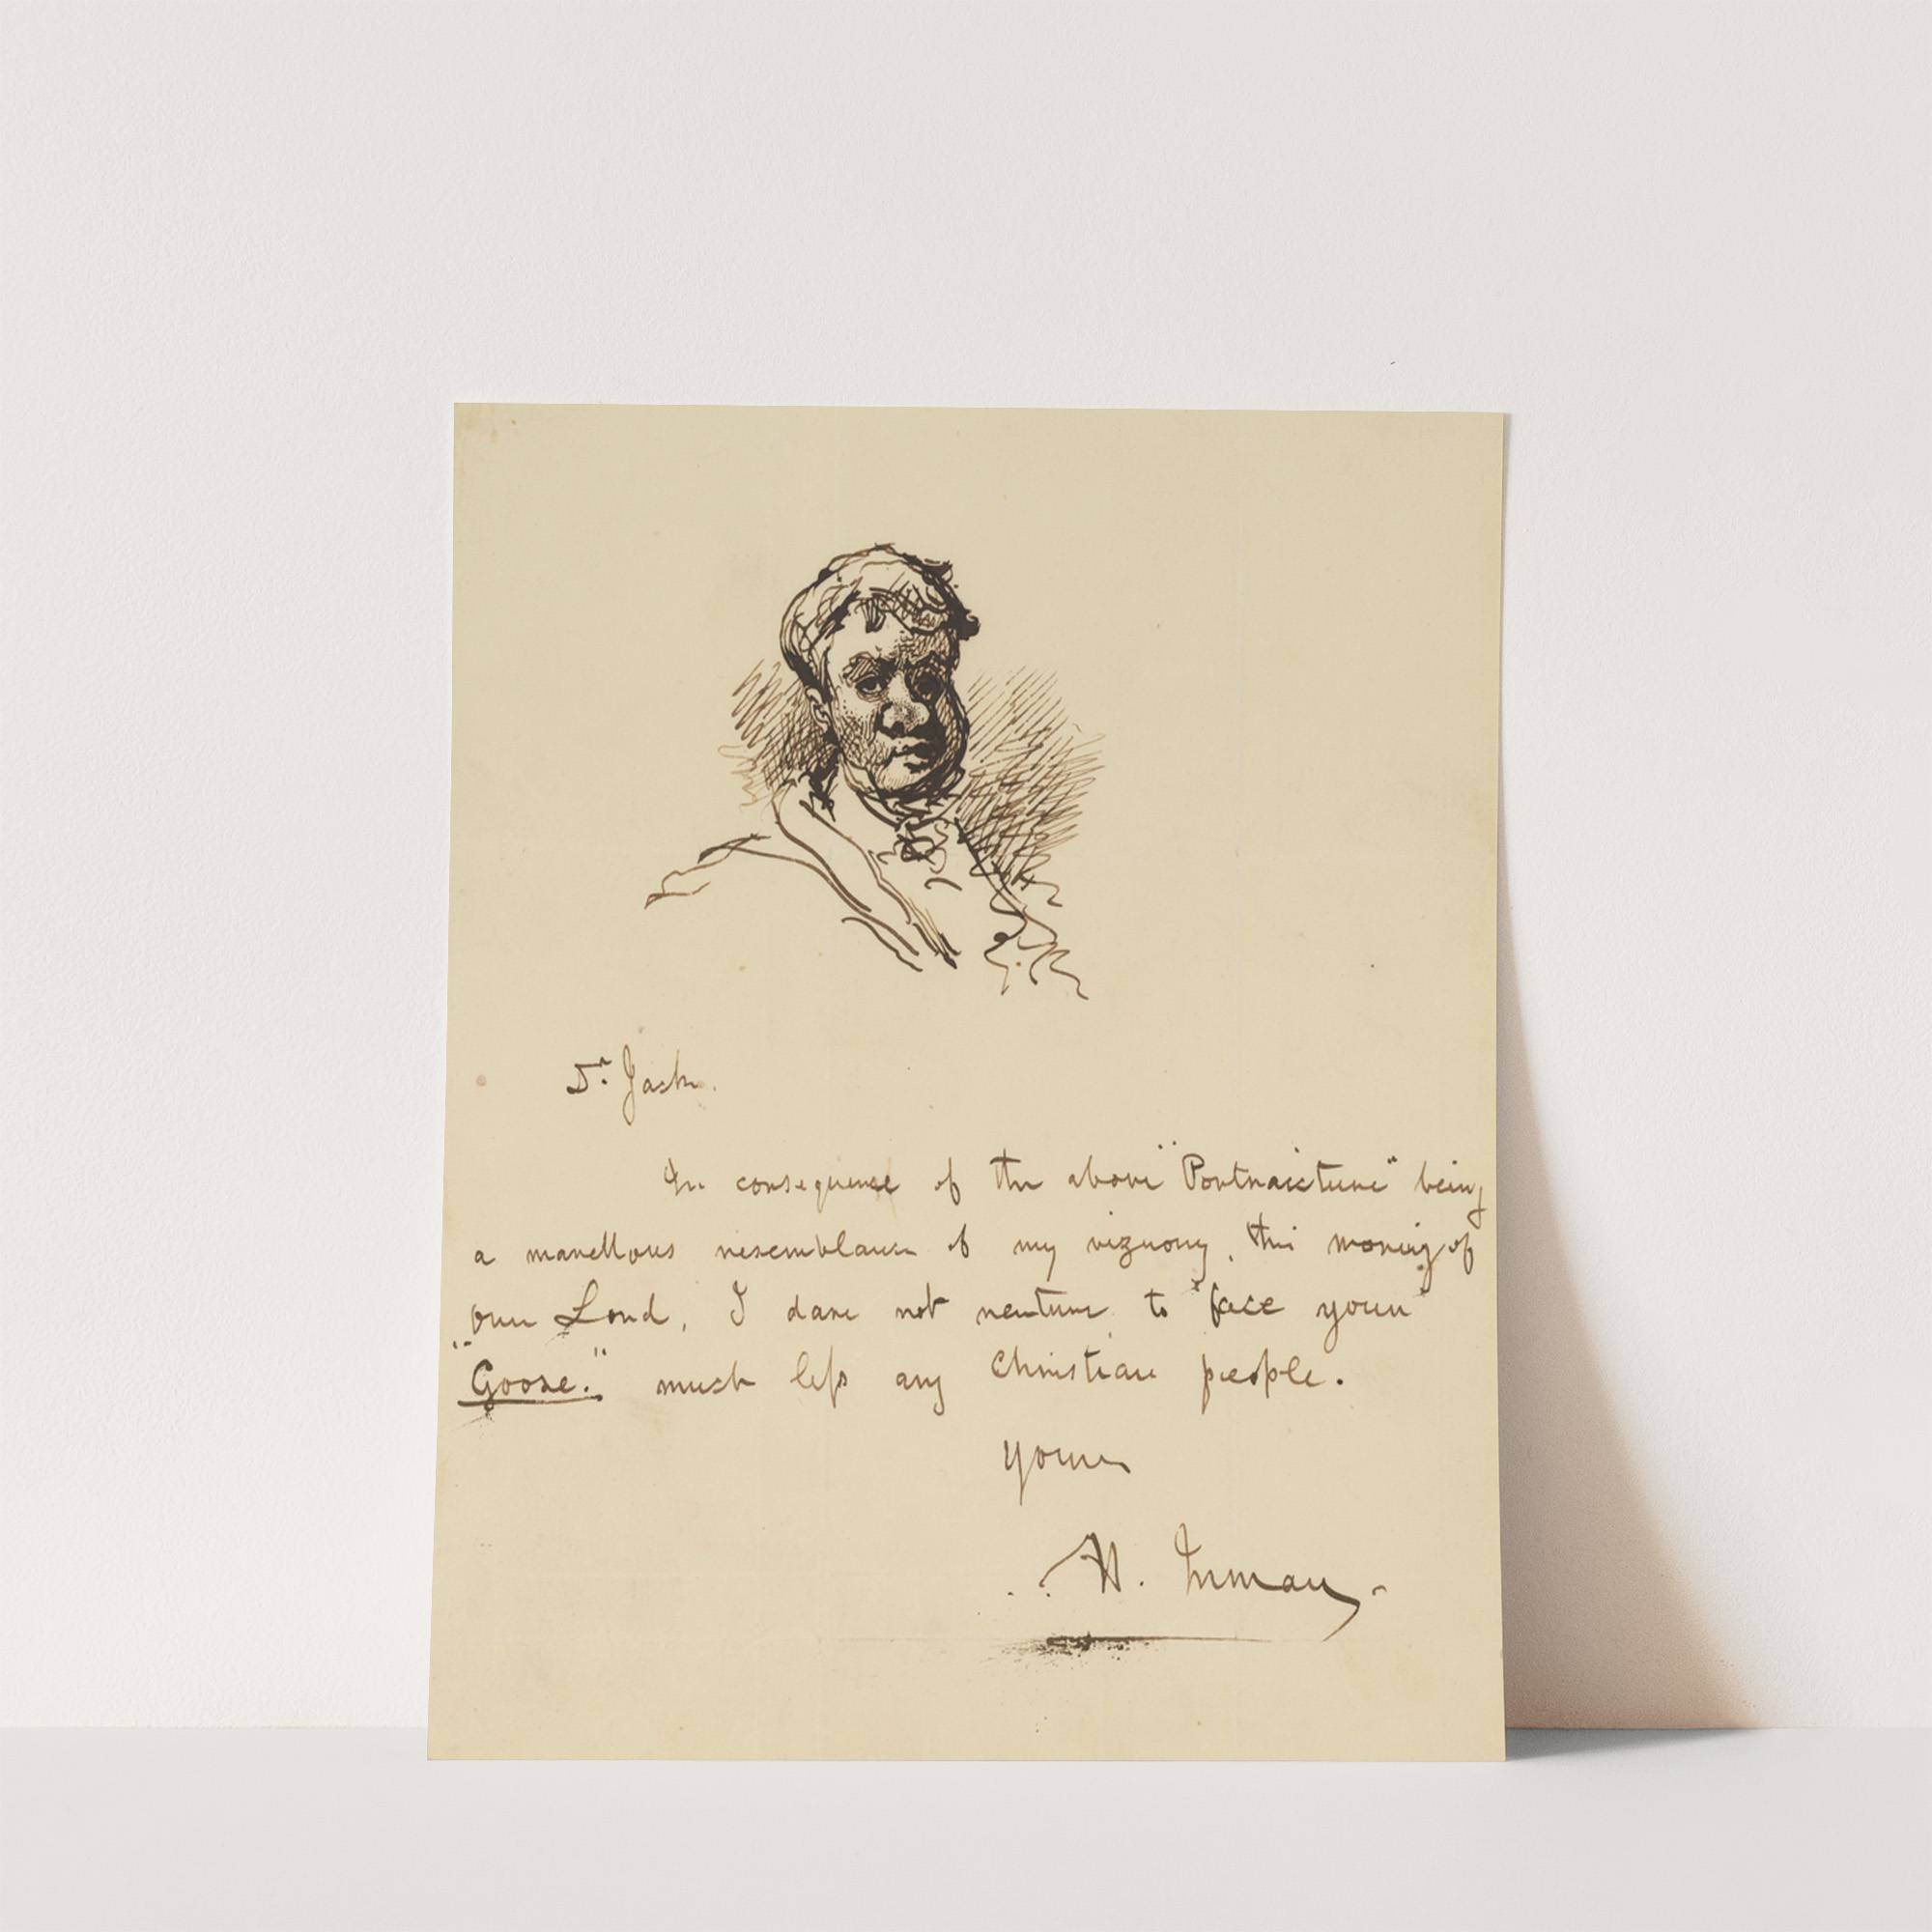 Dr. Jack.
In consequence of the above "Portraicture" being
a marvellous resemblance of my viznomy, this morning of
our Lord, I dare not venture to "face your
"Goose." much less any Christian people.
Yours
H. Inman